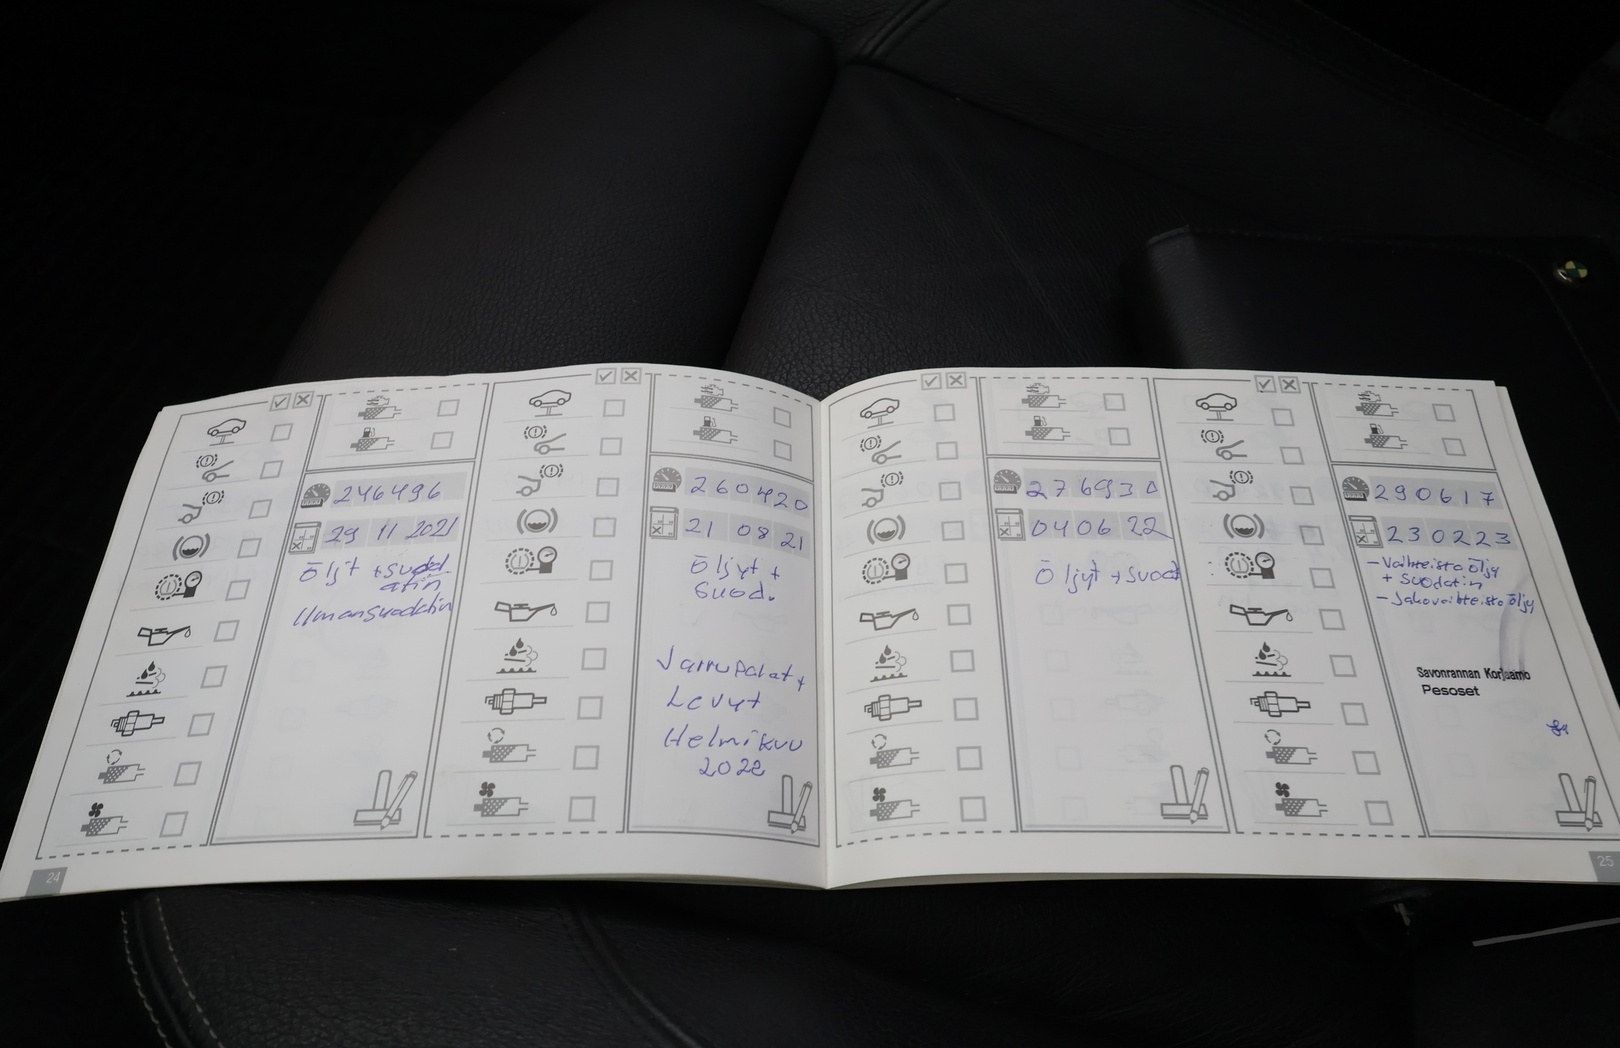 246496
29 11 2021
Öljt + suod.
atin
Ilmansuodatin
260420
21 08 21
Öljyt +
Suod.
Jarrupalat +
Levyt
Helmikuu
2022
276930
04 06 22
Öljyt + suod
290617
230223
- Vaihteisto öljy
+ suodatin
- Jakovaihteisto öljy
Savonrannan Korjaamo
Pesoset
24
25